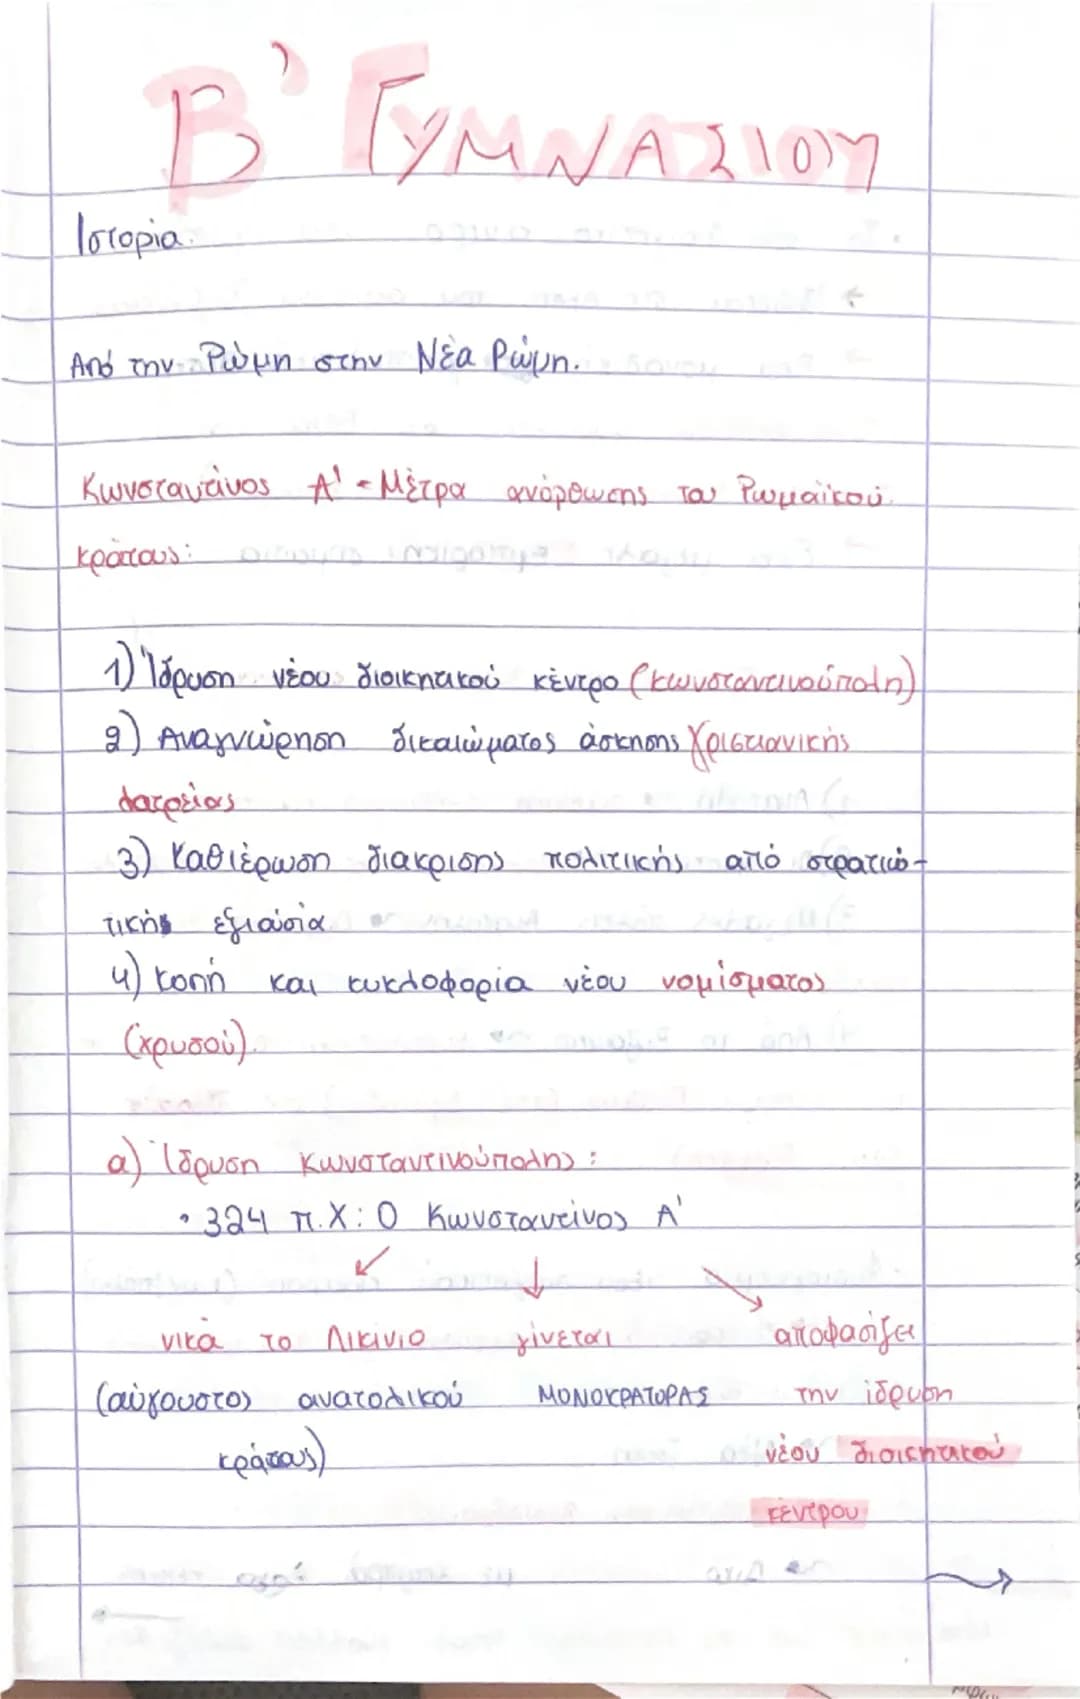 Β' ΓΥΜΝΑΣΙΟΥ
Ιστορία.
Από την Ρώμη στην Νέα Ρώμη.
Κωνσταντίνος Α' - Μέτρα ανόρθωσης του Ρωμαϊκού
κράτους:
1) Ίδρυση νέου διοικητικού κέντρο (Κωνσταντινούπολη)
2) Αναγνώρηση δικαιώματος άσκησης Χριστιανικής
λατρείας
3) Καθιέρωση διακρισης πολιτικής από στρατιω-
τικής εξιουσία
4) Κοπή και κυκλοφορία νέου νομίσματος
(χρυσού).
α) Ίδρυση Κωνσταντινούπολης:
• 324 π.Χ: Ο Κωνσταντίνος Α'
νικά το Λικίνιο γίνεται αποφασίζει
(αύγουστος ανατολικού ΜΟΝΟΚΡΑΤΟΡΑΣ την ίδρυση
κράτους) νέου διοικητικού
κέντρου